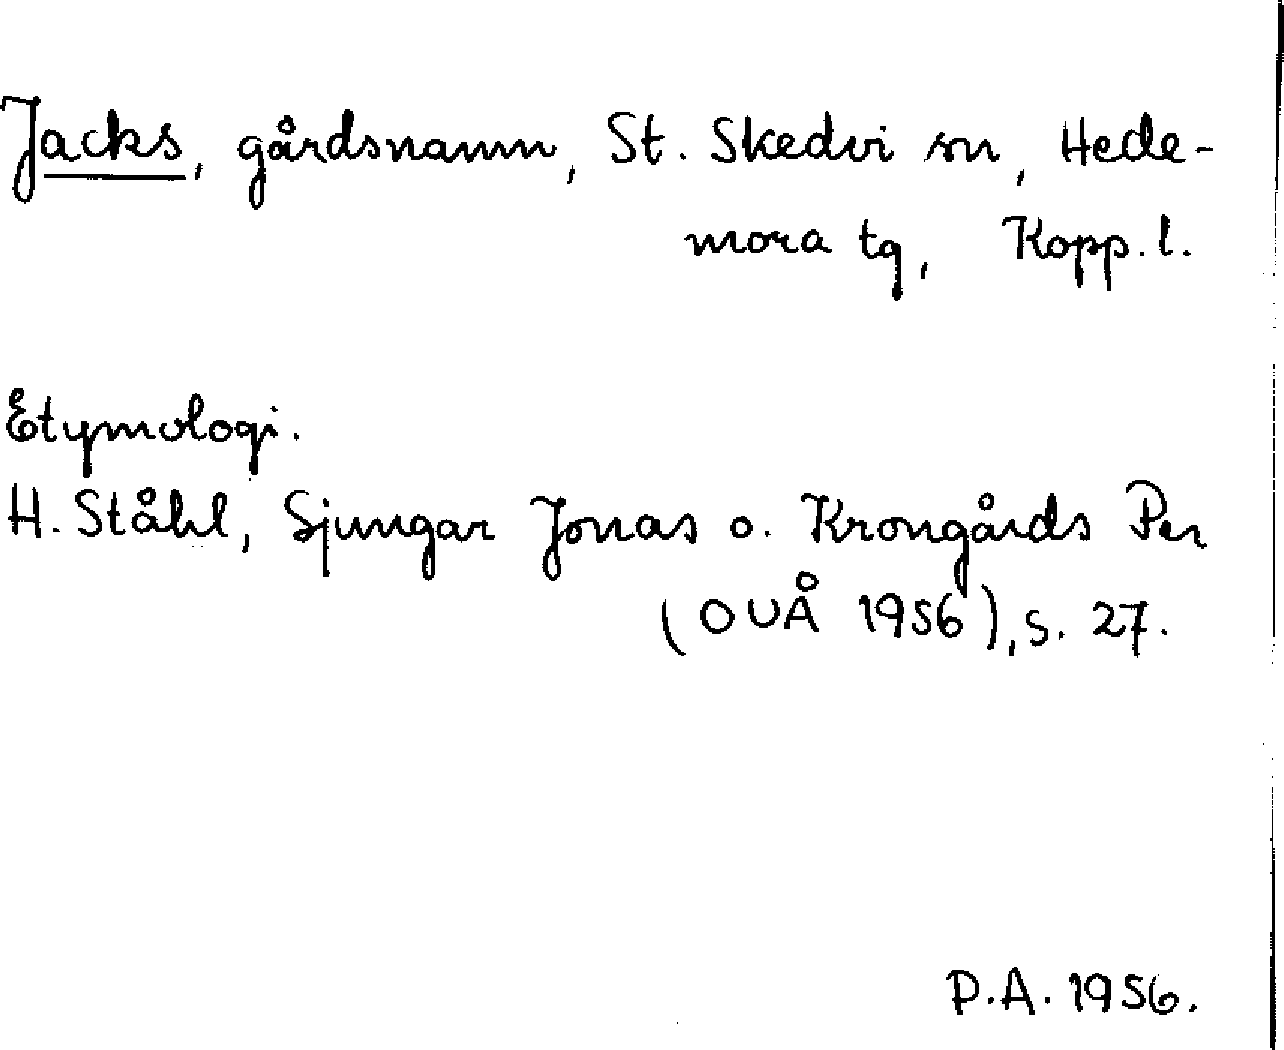 Jacks, gårdsnamn, St. Skedvi sn, Hede-
mora tg, Kopp. l.
Etymologi.
H. Ståhl, Sjungar Jonas o. Krongårds Per
(OUÅ 1956), s. 27.
P.A. 1956.